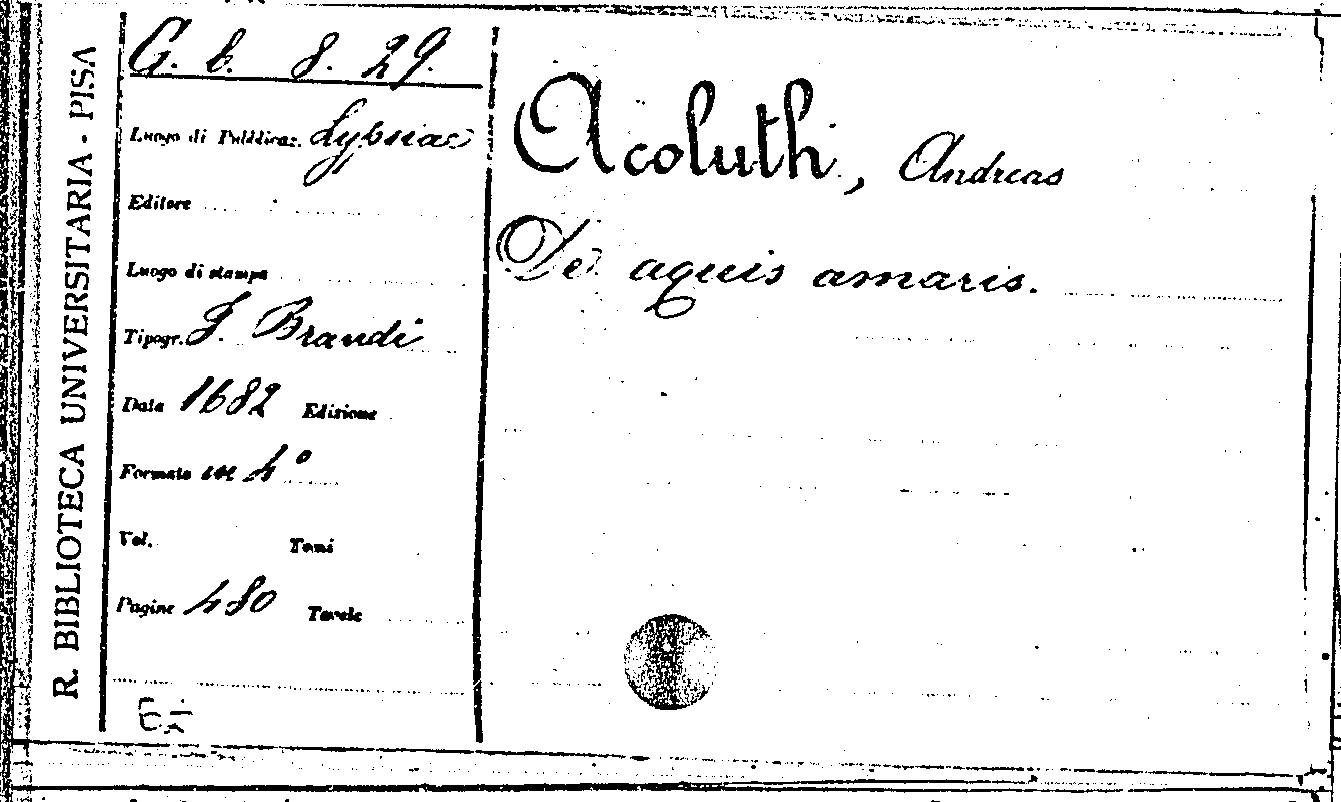 R. BIBLIOTECA UNIVERSITARIA - PISA
G. b. 8. 29.
Luogo di Pubblicaz. Lypsiae
Editore
Luogo di stampa
Tipogr. J. Brandi
Data 1682 Edizione
Formato in 4°
Vol. Tomi
Pagine 480 Tavole
Acoluth, Andreas
De aquis amaris.